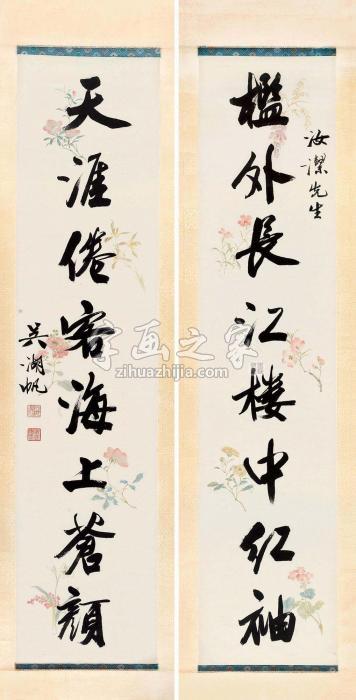 汝潔先生
檻外長江樓中紅袖
天涯倦客海上蒼顏
吳湖帆
字画之家
zihuazhijia.com